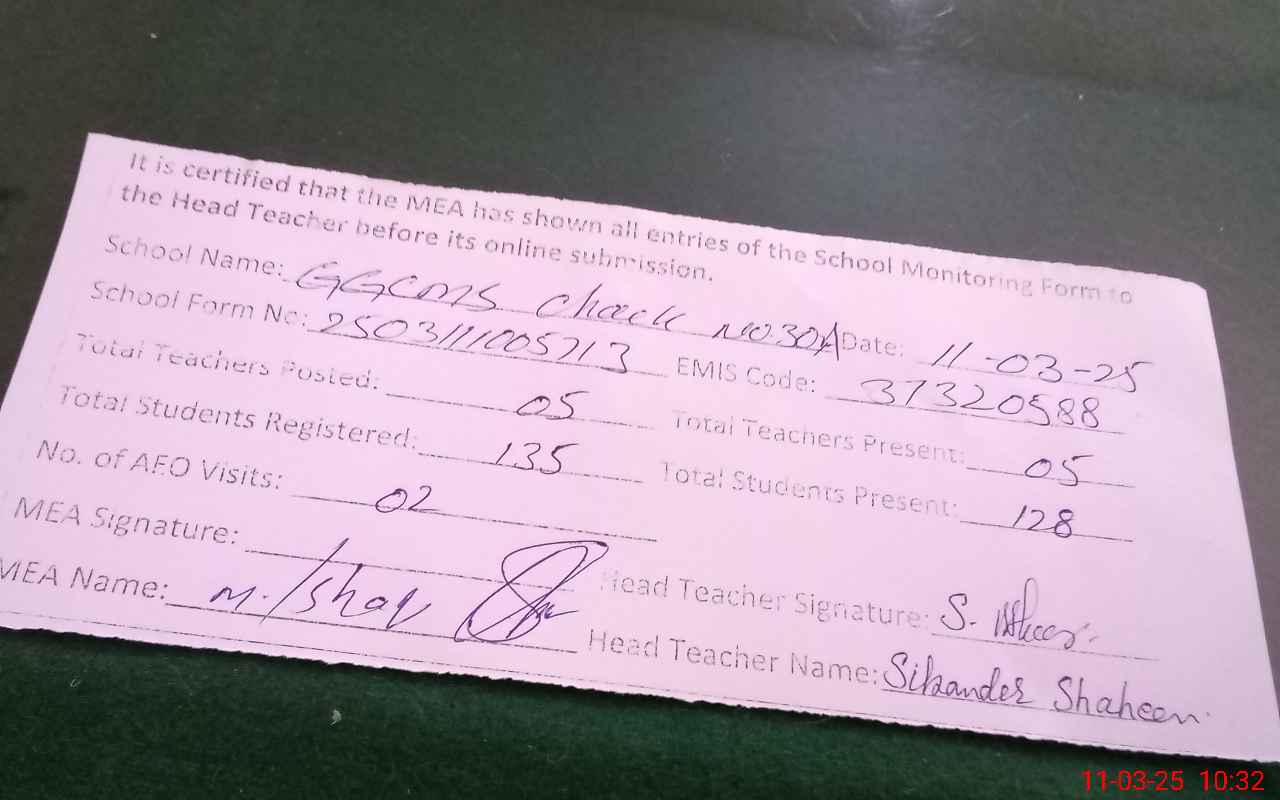 It is certified that the MEA has shown all entries of the School Monitoring Form to
the Head Teacher before its online submission.
School Name: GGCMS Chack No.30A Date: 11-03-25
School Form No: 2503111005713 EMIS Code: 37320588
Total Teachers Posted: 05 Total Teachers Present: 05
Total Students Registered: 135 Total Students Present: 128
No. of AEO Visits: 02
MEA Signature: Head Teacher Signature: S.
MEA Name: M. Ishaq Head Teacher Name: Sikander Shaheen
11-03-25 10:32